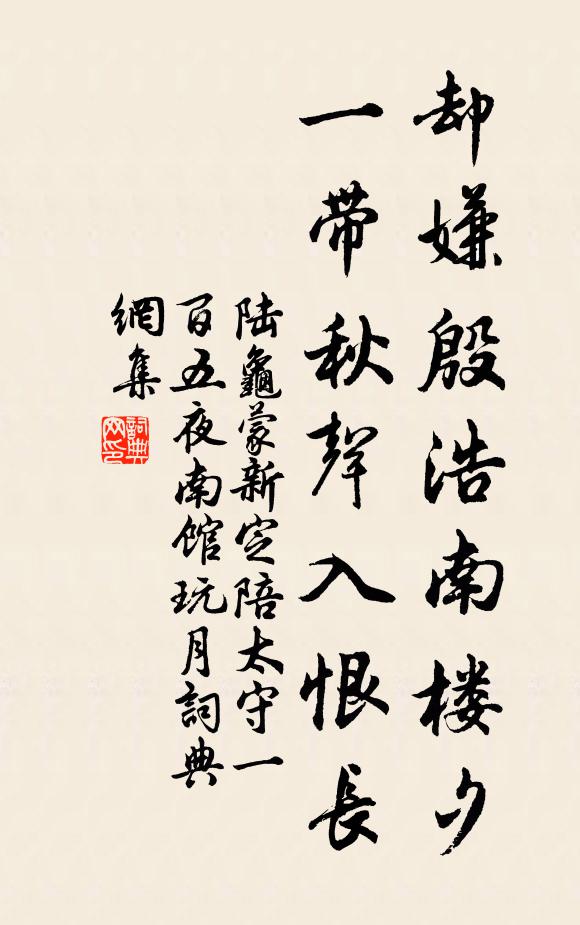 却嫌殷浩南楼夕
一带秋聲入恨長
陆龜蒙新定陪太守一
百五夜南館玩月詞典
網集
詞典
网印